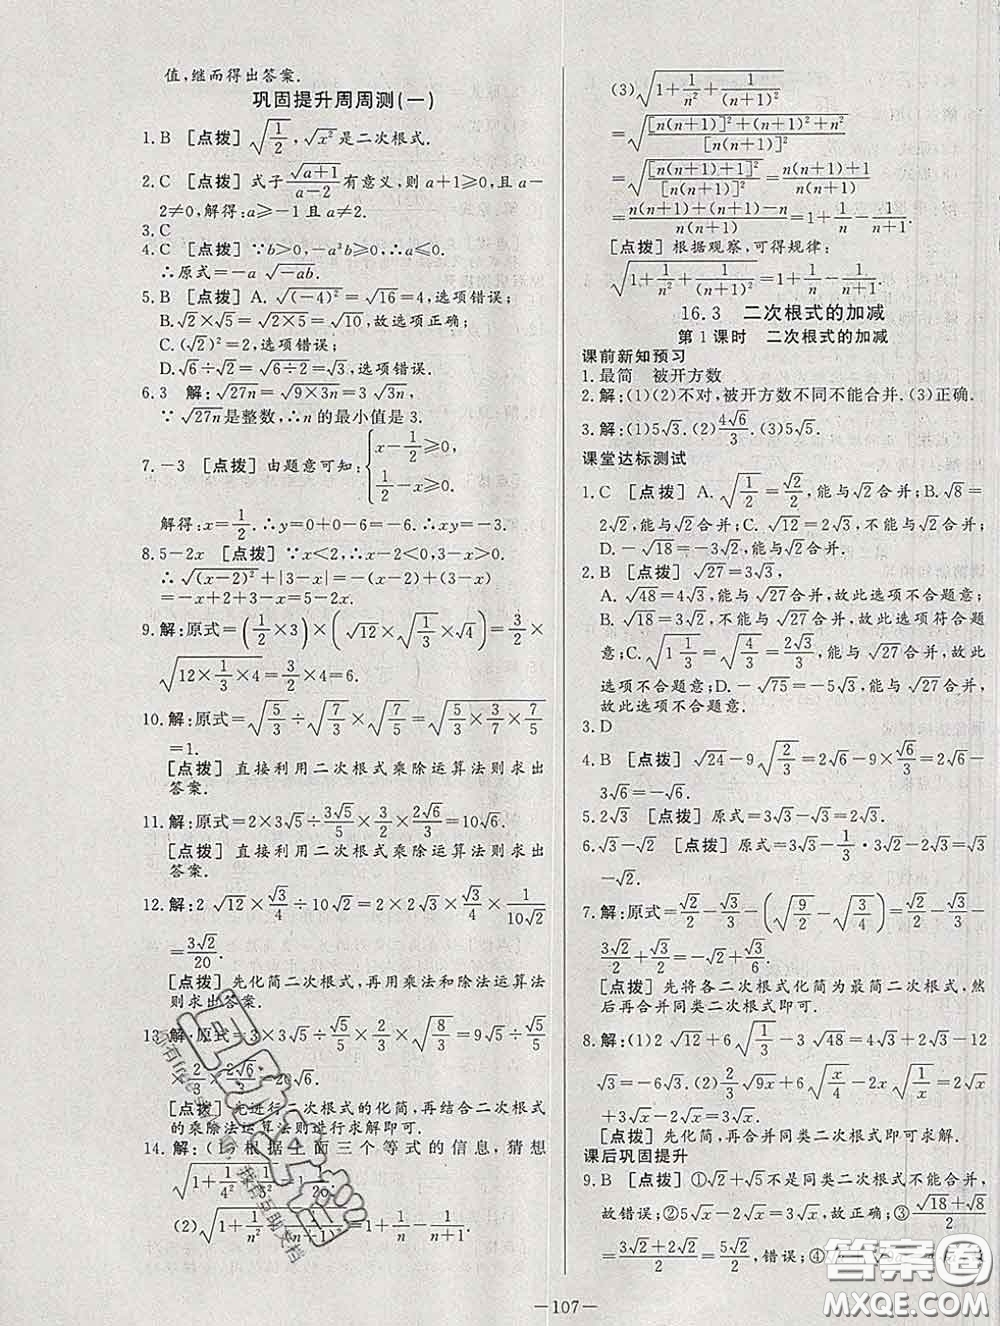 值,继而得出答案.
巩固提升周周测(一)
1.B [点拨] √(1/2), √x²是二次根式.
2.C [点拨] 式子√(a+1)/(a-2)有意义,则a+1≥0,且a-
2≠0,解得:a≥-1且a≠2.
3.C
4.C [点拨] ∵b>0,-a³b≥0,∴a≤0.
∴原式=-a√(-ab).
5.B [点拨] A. √(-4)²=√16=4,选项错误;
B.√2×√5=√(2×5)=√10,故选项正确;
C.(√2)²=2,选项错误;
6.3 解:√27n=√(9×3n)=3√3n,
∵√27n是整数,∴n的最小值是3.
7.-3 [点拨] 由题意可知:{x-1/2≥0, 1/2-x≥0,
解得:x=1/2.∴y=0+0-6=-6.∴xy=-3.
8.5-2x [点拨] ∵x<2,∴x-2<0,3-x>0.
∴√(x-2)²+|3-x|=|x-2|+|3-x|
=-x+2+3-x=5-2x.
9.解:原式=(1/2×3)×(√12×√(1/3)×√4)=3/2×
√(12×1/3×4)=3/2×4=6.
10.解:原式=√(5/3)÷√(7/3)×√(7/5)=√(5/3×3/7×7/5)
=1.
[点拨] 直接利用二次根式乘除运算法则求出
答案.
11.解:原式=2×3√5÷3√5/5×3/2×2√6/3=10√6.
[点拨] 直接利用二次根式乘除运算法则求出
答案.
12.解:2√12×√3/4÷10√2=2×2√3×√3/4×1/(10√2)
=3√2/20.
[点拨] 先化简二次根式,再用乘法和除法运算法
则求出答案.
13.解:原式=3×3√5÷√5/3×2/3×√(8/3)=9√5×3/√5
×2/3×2√6/3
[点拨] 先进行二次根式的化简,再结合二次根式
的乘除法运算法则进行求解即可.
14.解:(1)根据上面三个等式的信息,猜想
√(1+1/4²+1/5²)=1 1/20.
(2)√(1+1/n²+1/(n+1)²)=1+1/n-1/(n+1).
(3)√(1+1/n²+1/(n+1)²)
=√(([n(n+1)]²+(n+1)²+n²)/[n(n+1)]²)
=√([n(n+1)+1]²/[n(n+1)]²)=(n(n+1)+1)/(n(n+1))
=(n(n+1)+(n+1)-n)/(n(n+1))=1+1/n-1/(n+1).
[点拨] 根据观察,可得规律:
√(1+1/n²+1/(n+1)²)=1+1/n-1/(n+1).
16.3 二次根式的加减
第1课时 二次根式的加减
课前新知预习
1.最简 被开方数
2.解:(1)(2)不对,被开方数不同不能合并.(3)正确.
3.解:(1)5√3. (2)4√6/3. (3)5√5.
课堂达标测试
1.C [点拨] A.√(1/2)=√2/2,能与√2合并;B.√8=
2√2,能与√2合并;C.√12=2√3,不能与√2合并;
D.-√18=-3√2,能与√2合并.
2.B [点拨] √27=3√3,
A.√48=4√3,能与√27合并,故此选项不合题意;
意;C.√(1 1/3)=√(4/3)=2√3/3,能与√27合并,故此
选项不合题意;D.-√75=-5√3,能与√27合并,
故此选项不合题意.
3.D
4.B [点拨] √24-9√(2/3)=2√6-9×√6/3=2√6-
3√6=-√6.
5.2√3 [点拨] 原式=3√3-√3=2√3.
6.√3-√2 [点拨] 原式=√3-1/3·3√2=√3
-√2.
7.解:原式=√2/2-√3/3-(√(9/2)-√(3/4))=√2/2-√3/3-
3√2/2+√3/2=-√2+√3/6.
[点拨] 先将各二次根式化简为最简二次根式,然
后再合并同类二次根式即可.
8.解:(1)2√12+6√(1/3)-3√48=4√3+2√3-12
√3=-6√3. (2)2/3√9x+6√(x/4)-2x√(1/x)=2√x
+3√x-2√x=3√x.
[点拨] 先化简,再合并同类二次根式即可求解.
课后巩固提升
9.B [点拨] ①√2+√5不是同类二次根式不能合并,
故错误;②5√x-2√x=3√x,正确;③(√18+√8)/2
=(3√2+2√2)/2=5√2/2,错误;④
—107—
答案圈
MXQE.COM